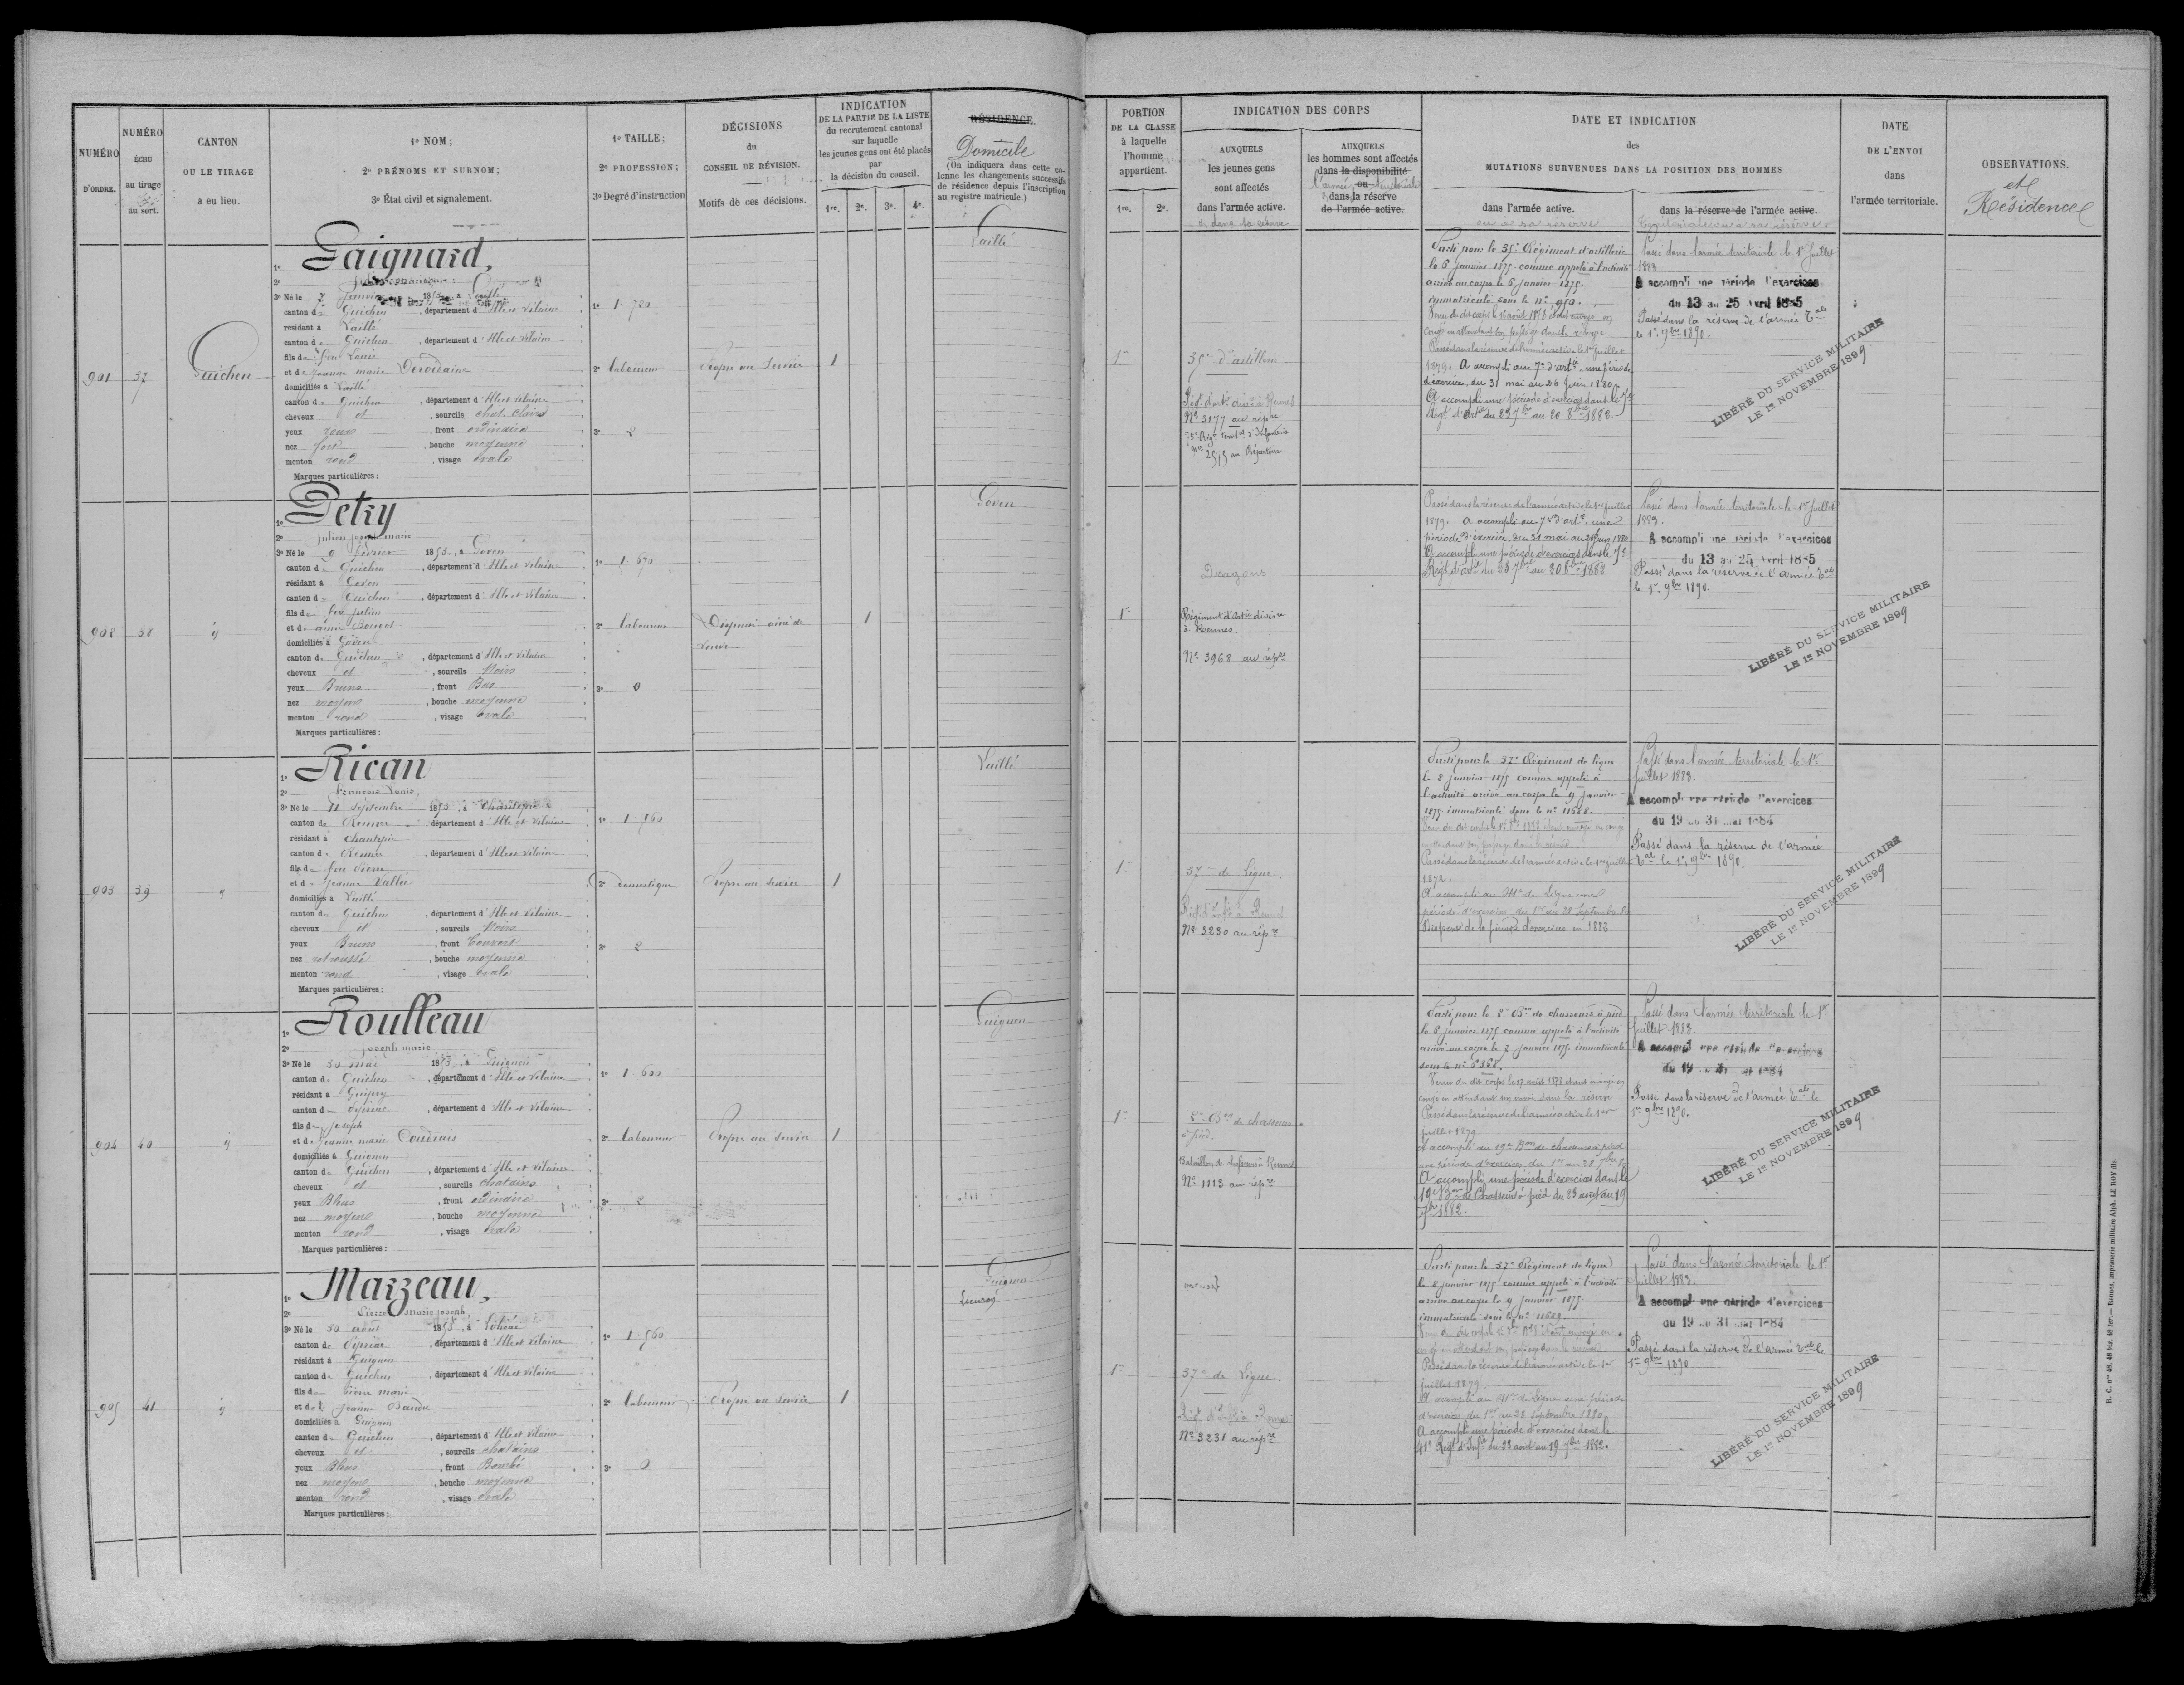 NUMÉRO
D'ORDRE.
NUMÉRO
ÉCHU
au tirage
au sort.
CANTON
OU LE TIRAGE
a eu lieu.
1º NOM;
2º PRÉNOMS ET SURNOM;
3º État civil et signalement.
1º TAILLE;
2º PROFESSION;
3º Degré d'instruction
DÉCISIONS
du
CONSEIL DE RÉVISION.
Motifs de ces décisions.
INDICATION
DE LA PARTIE DE LA LISTE
du recrutement cantonal
sur laquelle
les jeunes gens ont été placés
par
la décision du conseil.
1re. 2e. 3e. 4e.
RÉSIDENCE
Domicile
(On indiquera dans cette co-
lonne les changements successifs
de résidence depuis l'inscription
au registre matricule.)
PORTION
DE LA CLASSE
à laquelle
l'homme
appartient.
1re. 2e.
INDICATION DES CORPS
AUXQUELS
les jeunes gens
sont affectés
dans l'armée active.
& dans la réserve
AUXQUELS
les hommes sont affectés
dans la disponibilité
ou
l'armée territoriale
dans la réserve
de l'armée active.
DATE ET INDICATION
des
MUTATIONS SURVENUES DANS LA POSITION DES HOMMES
dans l'armée active.
ou sa réserve
dans la réserve de l'armée active.
territoriale ou sa réserve
DATE
DE L'ENVOI
dans
l'armée territoriale.
OBSERVATIONS.
et
Résidence
901
37
Guichen
1º Gaignard,
2º
3º Né le 7 Janvier 1853, à Laillé
canton de Guichen, département d'Ille et Vilaine
résidant à Laillé
canton de Guichen, département d'Ille et Vilaine
fils de feu Louis
et de Jeanne marie
domiciliés à Laillé
canton de Guichen, département d'Ille et Vilaine
cheveux et, sourcils chât. clairs
yeux roux, front ordinaire
nez fort, bouche moyenne
menton rond, visage ovale
Marques particulières :
1º 1.720
2º laboureur
3º 2
Propre au Service
1
Laillé
1re
35e d'artillerie
Régt d'artie divre à Rennes
Nº 3177 au répre
Nº 2555 au Répertoire
Parti pour le 35e Régiment d'artillerie
le 6 janvier 1875 comme appelé à l'activité
arrivé au corps le 6 janvier 1875.
immatriculé sous le nº 950.
congé en attendant son passage dans la réserve
Passé dans la réserve de l'armée active le 1er juillet
1879. A accompli au 7e d'artie une période
d'exercice, du 31 mai au 26 juin 1880
A accompli une période d'exercices dans le 7e
Régt d'artie du 23 7bre au 20 8bre 1882
Passé dans l'armée territoriale le 1er Juillet
1883
A accompli une période d'exercices
du 13 au 25 avril 1885
Passé dans la réserve de l'armée tale
le 1er 9bre 1890.
LIBÉRÉ DU SERVICE MILITAIRE
LE 1er NOVEMBRE 1899
902
38
1º Petry
2º Julien joseph marie
3º Né le 6 février 1853, à Goven
canton de Guichen, département d'Ille et Vilaine
résidant à Goven
canton de Guichen, département d'Ille et Vilaine
fils de feu julien
et de anne
domiciliés à Goven
canton de Guichen, département d'Ille et Vilaine
cheveux et, sourcils Noirs
yeux Bruns, front Bas
nez moyen, bouche moyenne
menton rond, visage ovale
Marques particulières :
1º 1.670
2º laboureur
3º 0
Dispensé ainé de
veuve
1
Goven
1re
Dragons
Régiment d'Artie divisre
à Rennes
Nº 3968 au répre
Passé dans la réserve de l'armée active le 1er juillet
1879. A accompli au 7e d'artie une
période d'exercice, du 31 mai au 26 juin 1880
A accompli une période d'exercices dans le 7e
Régt d'artie du 23 7bre au 20 8bre 1882
Passé dans l'armée territoriale le 1er Juillet
1883.
A accompli une période d'exercices
du 13 au 25 avril 1885
Passé dans la réserve de l'armée tale
le 1er 9bre 1890.
LIBÉRÉ DU SERVICE MILITAIRE
LE 1er NOVEMBRE 1899
903
39
1º Rican
2º francois Louis,
3º Né le 11 septembre 1853, à Chantepie
canton de Rennes, département d'Ille et Vilaine
résidant à Chantepie
canton de Rennes, département d'Ille et Vilaine
fils de feu Pierre
et de Jeanne Vallée
domiciliés à Laillé
canton de Guichen, département d'Ille et Vilaine
cheveux et, sourcils Noirs
yeux Bruns, front Couvert
nez retroussé, bouche moyenne
menton rond, visage ovale
Marques particulières :
1º 1.560
2º domestique
3º 2
Propre au Service
1
Laillé
1re
37e de Ligne.
Régt d'Infie à Rennes
Nº 3230 au répre
Parti pour le 37e Régiment de ligne
le 8 janvier 1875 comme appelé à
l'activité arrivé au corps le 9 janvier
1875 immatriculé sous le nº 11688.
Passé dans la réserve de l'armée active le 1er juillet
1879.
A accompli au 41e de Ligne une
période d'exercices du 1er au 28 Septembre 80
Dispensé de la période d'exercices en 1882
Passé dans l'armée territoriale le 1er
juillet 1883.
A accompli une période d'exercices
du 19 au 31 mai 1884
Passé dans la réserve de l'armée
tale le 1er 9bre 1890.
LIBÉRÉ DU SERVICE MILITAIRE
LE 1er NOVEMBRE 1899
904
40
1º Roulleau
2º joseph marie
3º Né le 30 mai 1853, à Guignen
canton de Guichen, département d'Ille et Vilaine
résidant à Guipry
canton de Pipriac, département d'Ille et Vilaine
fils de Joseph
et de Jeanne marie Coudrais
domiciliés à Guignen
canton de Guichen, département d'Ille et Vilaine
cheveux et, sourcils chatains
yeux Bleus, front ordinaire
nez moyen, bouche moyenne
menton rond, visage ovale
Marques particulières :
1º 1.600
2º laboureur
3º 2
Propre au Service
1
Guignen
1re
8e Bon de chasseurs
à pied.
Nº 1113 au répre
Parti pour le 8e Bon de chasseurs à pied
le 8 janvier 1875 comme appelé à l'activité
arrivé au corps le 7 janvier 1875 immatriculé
sous le nº 5368.
congé en attendant son envoi dans la réserve
Passé dans la réserve de l'armée active le 1er
juillet 1879
A accompli au 19e Bon de chasseurs à pied
une période d'exercices du 1er au 28 7bre 80
A accompli une période d'exercices dans le
19e Bon de Chasseurs à pied du 23 août au 19
7bre 1882.
Passé dans l'armée territoriale le 1er
juillet 1883.
A accompli une période d'exercices
du 19 au 31 mai 1884
Passé dans la réserve de l'armée tale le
1er 9bre 1890.
LIBÉRÉ DU SERVICE MILITAIRE
LE 1er NOVEMBRE 1899
905
41
1º Marzeau,
2º Pierre Marie joseph
3º Né le 30 aout 1853, à Lohéac
canton de Pipriac, département d'Ille et Vilaine
résidant à Guignen
canton de Guichen, département d'Ille et Vilaine
fils de Pierre marie
et de Jeanne Baudu
domiciliés à Guignen
canton de Guichen, département d'Ille et Vilaine
cheveux et, sourcils chatains
yeux Bleus, front Bombé
nez moyen, bouche moyenne
menton rond, visage ovale
Marques particulières :
1º 1.560
2º laboureur
3º 0
Propre au Service
1
Guignen
Lieuron
1re
37e de Ligne.
Régt d'Infie à Rennes
Nº 3231 au répre
Parti pour le 37e Régiment de ligne
le 8 janvier 1875 comme appelé à l'activité
arrivé au corps le 9 janvier 1875.
immatriculé sous le nº 11689.
Passé dans la réserve de l'armée active le 1er
juillet 1879.
A accompli au 41e de Ligne une période
d'exercices du 1er au 28 Septembre 1880
A accompli une période d'exercices dans le
41e Régt d'Infie du 23 août au 19 7bre 1882.
Passé dans l'armée territoriale le 1er
juillet 1883.
A accompli une période d'exercices
du 19 au 31 mai 1884
Passé dans la réserve de l'armée tale le
1er 9bre 1890
LIBÉRÉ DU SERVICE MILITAIRE
LE 1er NOVEMBRE 1899
R. C. nos 48, 48 bis, 48 ter. — Rennes, imprimerie militaire Alph. LE ROY fils